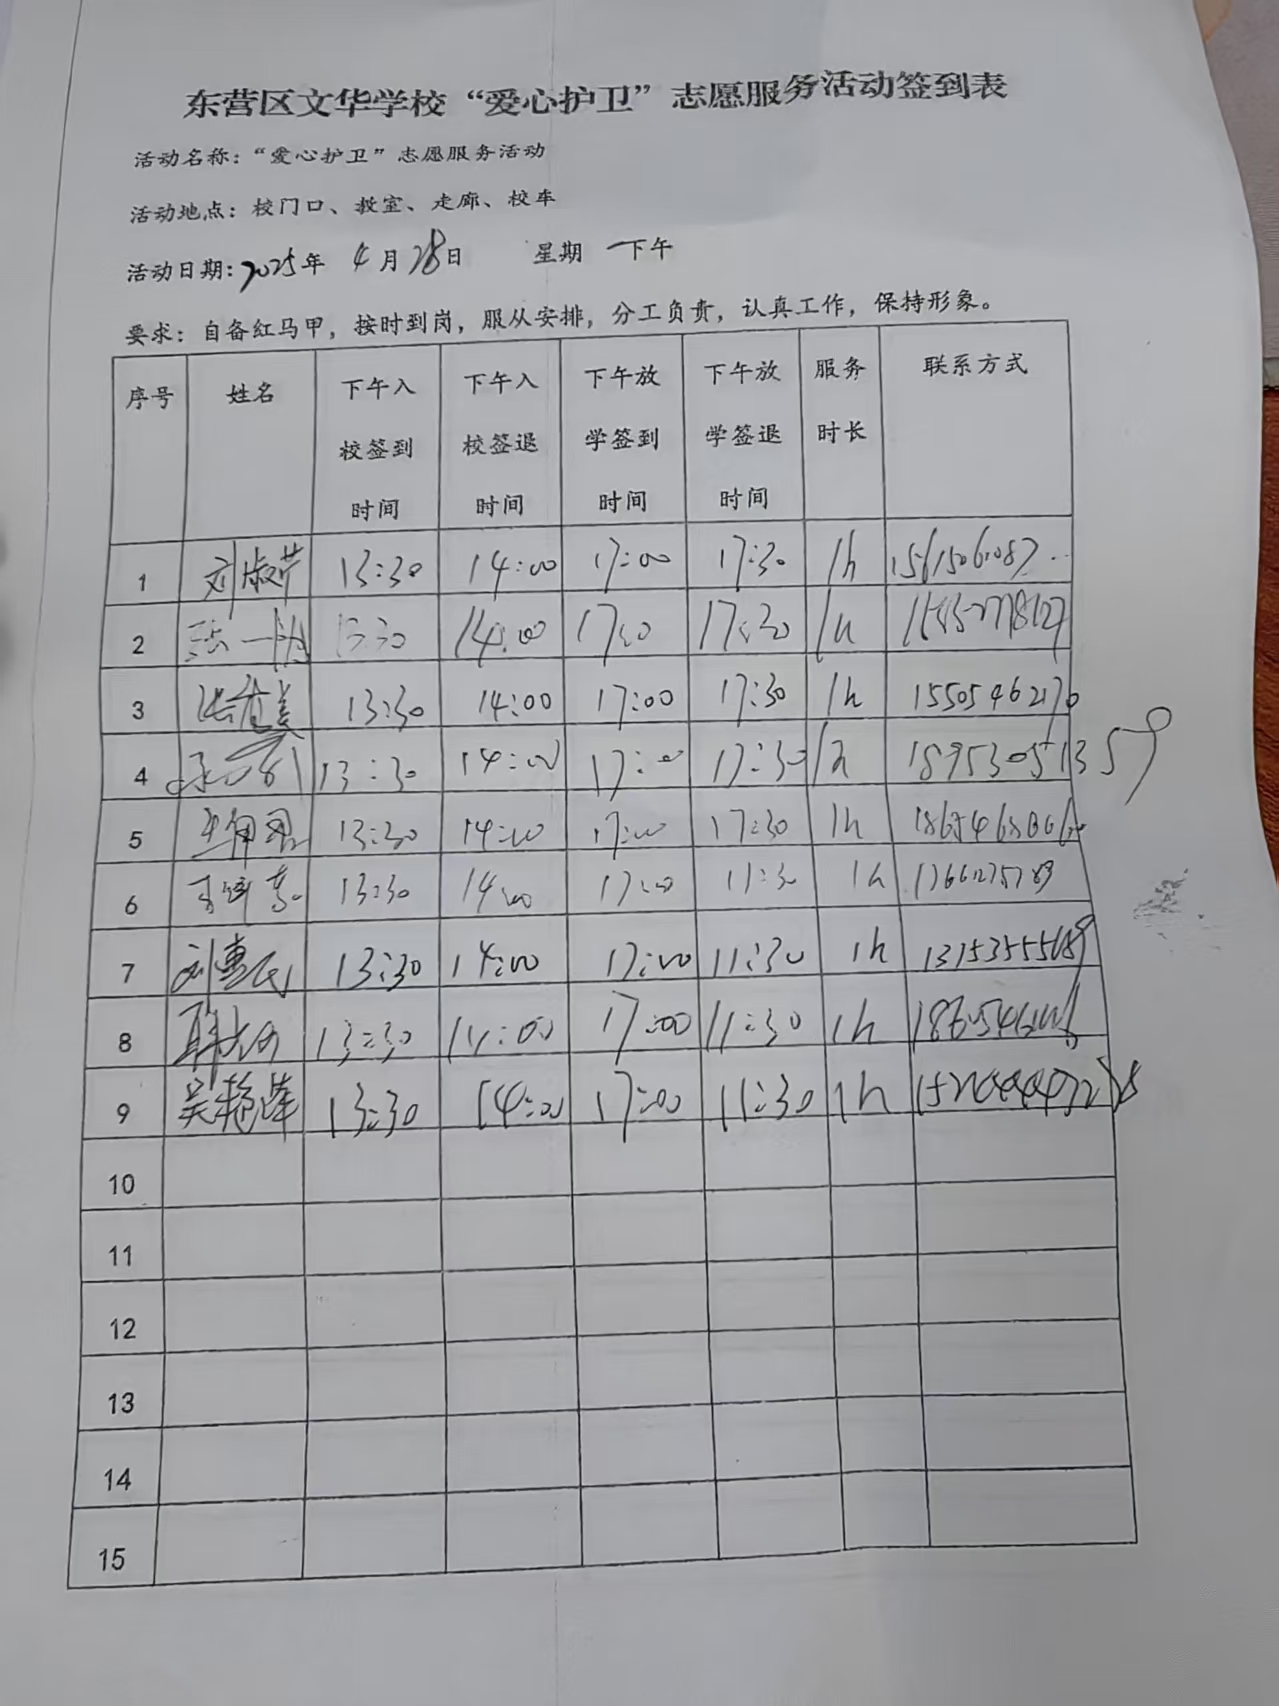 东营区文华学校“爱心护卫”志愿服务活动签到表
活动名称：“爱心护卫”志愿服务活动
活动地点：校门口、教室、走廊、校车
活动日期：2025年 4月28日 星期 一下午
要求：自备红马甲，按时到岗，服从安排，分工负责，认真工作，保持形象。
序号 姓名 下午入校签到时间 下午入校签退时间 下午放学签到时间 下午放学签退时间 服务时长 联系方式
1 刘淑芹 13:30 14:00 17:00 17:30 1h 15615061087
2 13:30 14:00 17:00 17:30 1h
3 13:30 14:00 17:00 17:30 1h 15505462170
4 13:30 14:00 17:00 17:30 1h 18953051359
5 13:30 14:00 17:00 17:30 1h
6 13:30 14:00 17:00 11:30 1h
7 刘惠民 13:30 14:00 17:00 11:30 1h
8 13:30 14:00 17:00 11:30 1h
9 吴艳萍 13:30 14:00 17:00 11:30 1h
10
11
12
13
14
15